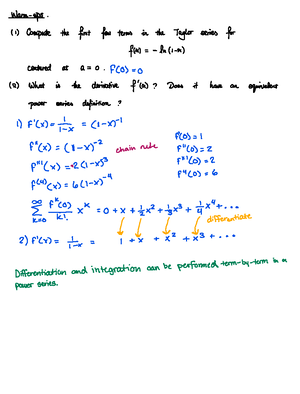 Warm-ups.
(1) Compute the first few terms in the Taylor series for
f(x) = - ln(1-x)
centered at a = 0. F(0) = 0
(2) What is the derivative f'(x)? Does it have an equivalent
power series definition?
1) F'(x) = 1/(1-x) = (1-x)^-1
F''(x) = (1-x)^-2
chain rule
F'''(x) = 2(1-x)^-3
F^(4)(x) = 6(1-x)^-4
F'(0) = 1
F''(0) = 2
F'''(0) = 2
F^4(0) = 6
∞ Σ k=0 F^k(0)/k! x^k = 0 + x + 1/2 x^2 + 1/3 x^3 + 1/4 x^4 + ...
differentiate
2) F'(x) = 1/(1-x) = 1 + x + x^2 + x^3 + ...
Differentiation and integration can be performed term-by-term in a
power series.